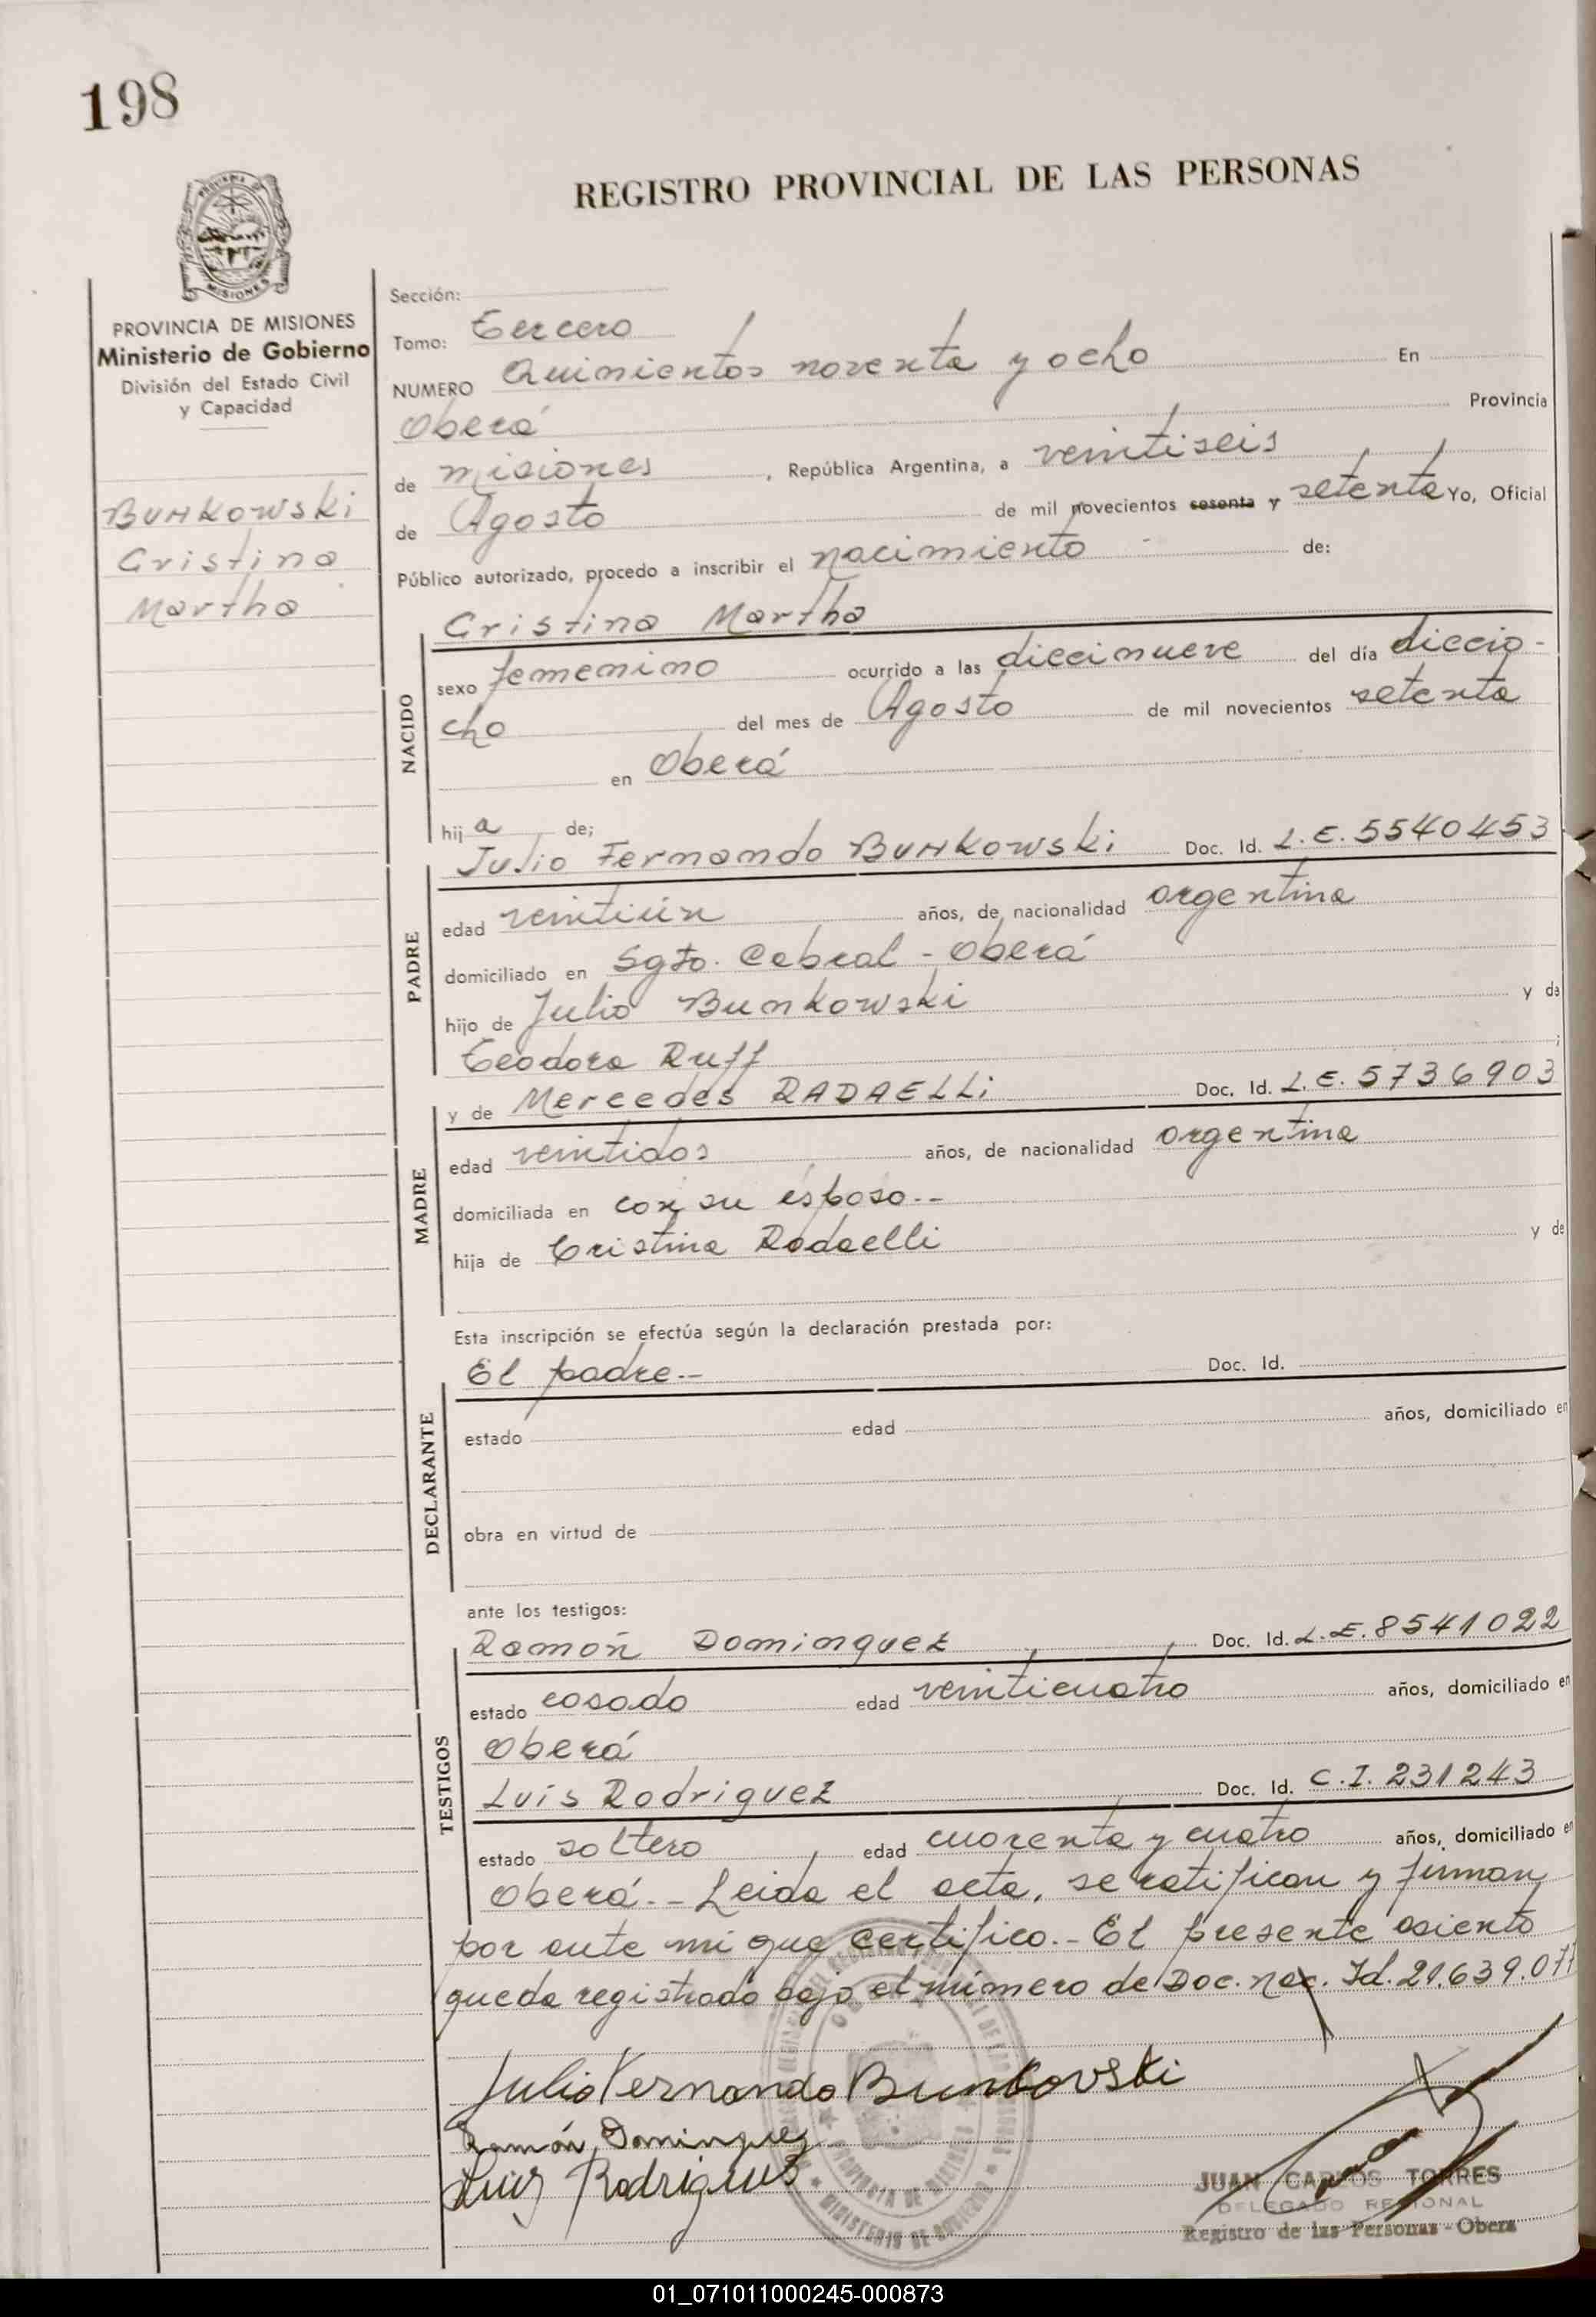 198
REGISTRO PROVINCIAL DE LAS PERSONAS
MISIONES
PROVINCIA DE MISIONES
Ministerio de Gobierno
División del Estado Civil
y Capacidad
Bunkowski
Cristina
Martha
Sección:
Tomo: Tercero
NUMERO Quinientos noventa y ocho En
Oberá Provincia
de Misiones, República Argentina, a veintiseis
de Agosto de mil novecientos sesenta y setenta Yo, Oficial
Público autorizado, procedo a inscribir el nacimiento - de:
Cristina Martha
NACIDO
sexo femenino ocurrido a las diecinueve del día diecio-
cho del mes de Agosto de mil novecientos setenta
en Oberá
hij a de;
Julio Fernando Bunkowski Doc. Id. L.E. 5540453
PADRE
edad veintiún años, de nacionalidad argentina
domiciliado en Sgto. Cabral - Oberá
hijo de Julio Bunkowski y de
Teodora Ruff ;
y de Mercedes RADAELLi Doc. Id. L.E. 5736903
MADRE
edad veintidos años, de nacionalidad argentina
domiciliada en con su esposo.--
hija de Cristina Radaelli y de
Esta inscripción se efectúa según la declaración prestada por:
El padre.-- Doc. Id.
DECLARANTE
estado edad años, domiciliado en
obra en virtud de
ante los testigos:
Ramón Dominguez Doc. Id. L.E. 8541022
TESTIGOS
estado casado edad veinticuatro años, domiciliado en
Oberá
Luis Rodriguez Doc. Id. C.I. 231243
estado soltero edad cuarenta y cuatro años, domiciliado en
Oberá.-- Leida el acta, se ratifican y firman
por ante mi que certifico.- El presente asiento
queda registrado bajo el número de Doc. nac. Id. 21.639.077
Julio Fernando Bunkovski
Ramón Dominguez
Luis Rodrigues
JUAN CARLOS TORRES
DELEGADO REGIONAL
Registro de las Personas - Obera
01_071011000245-000873